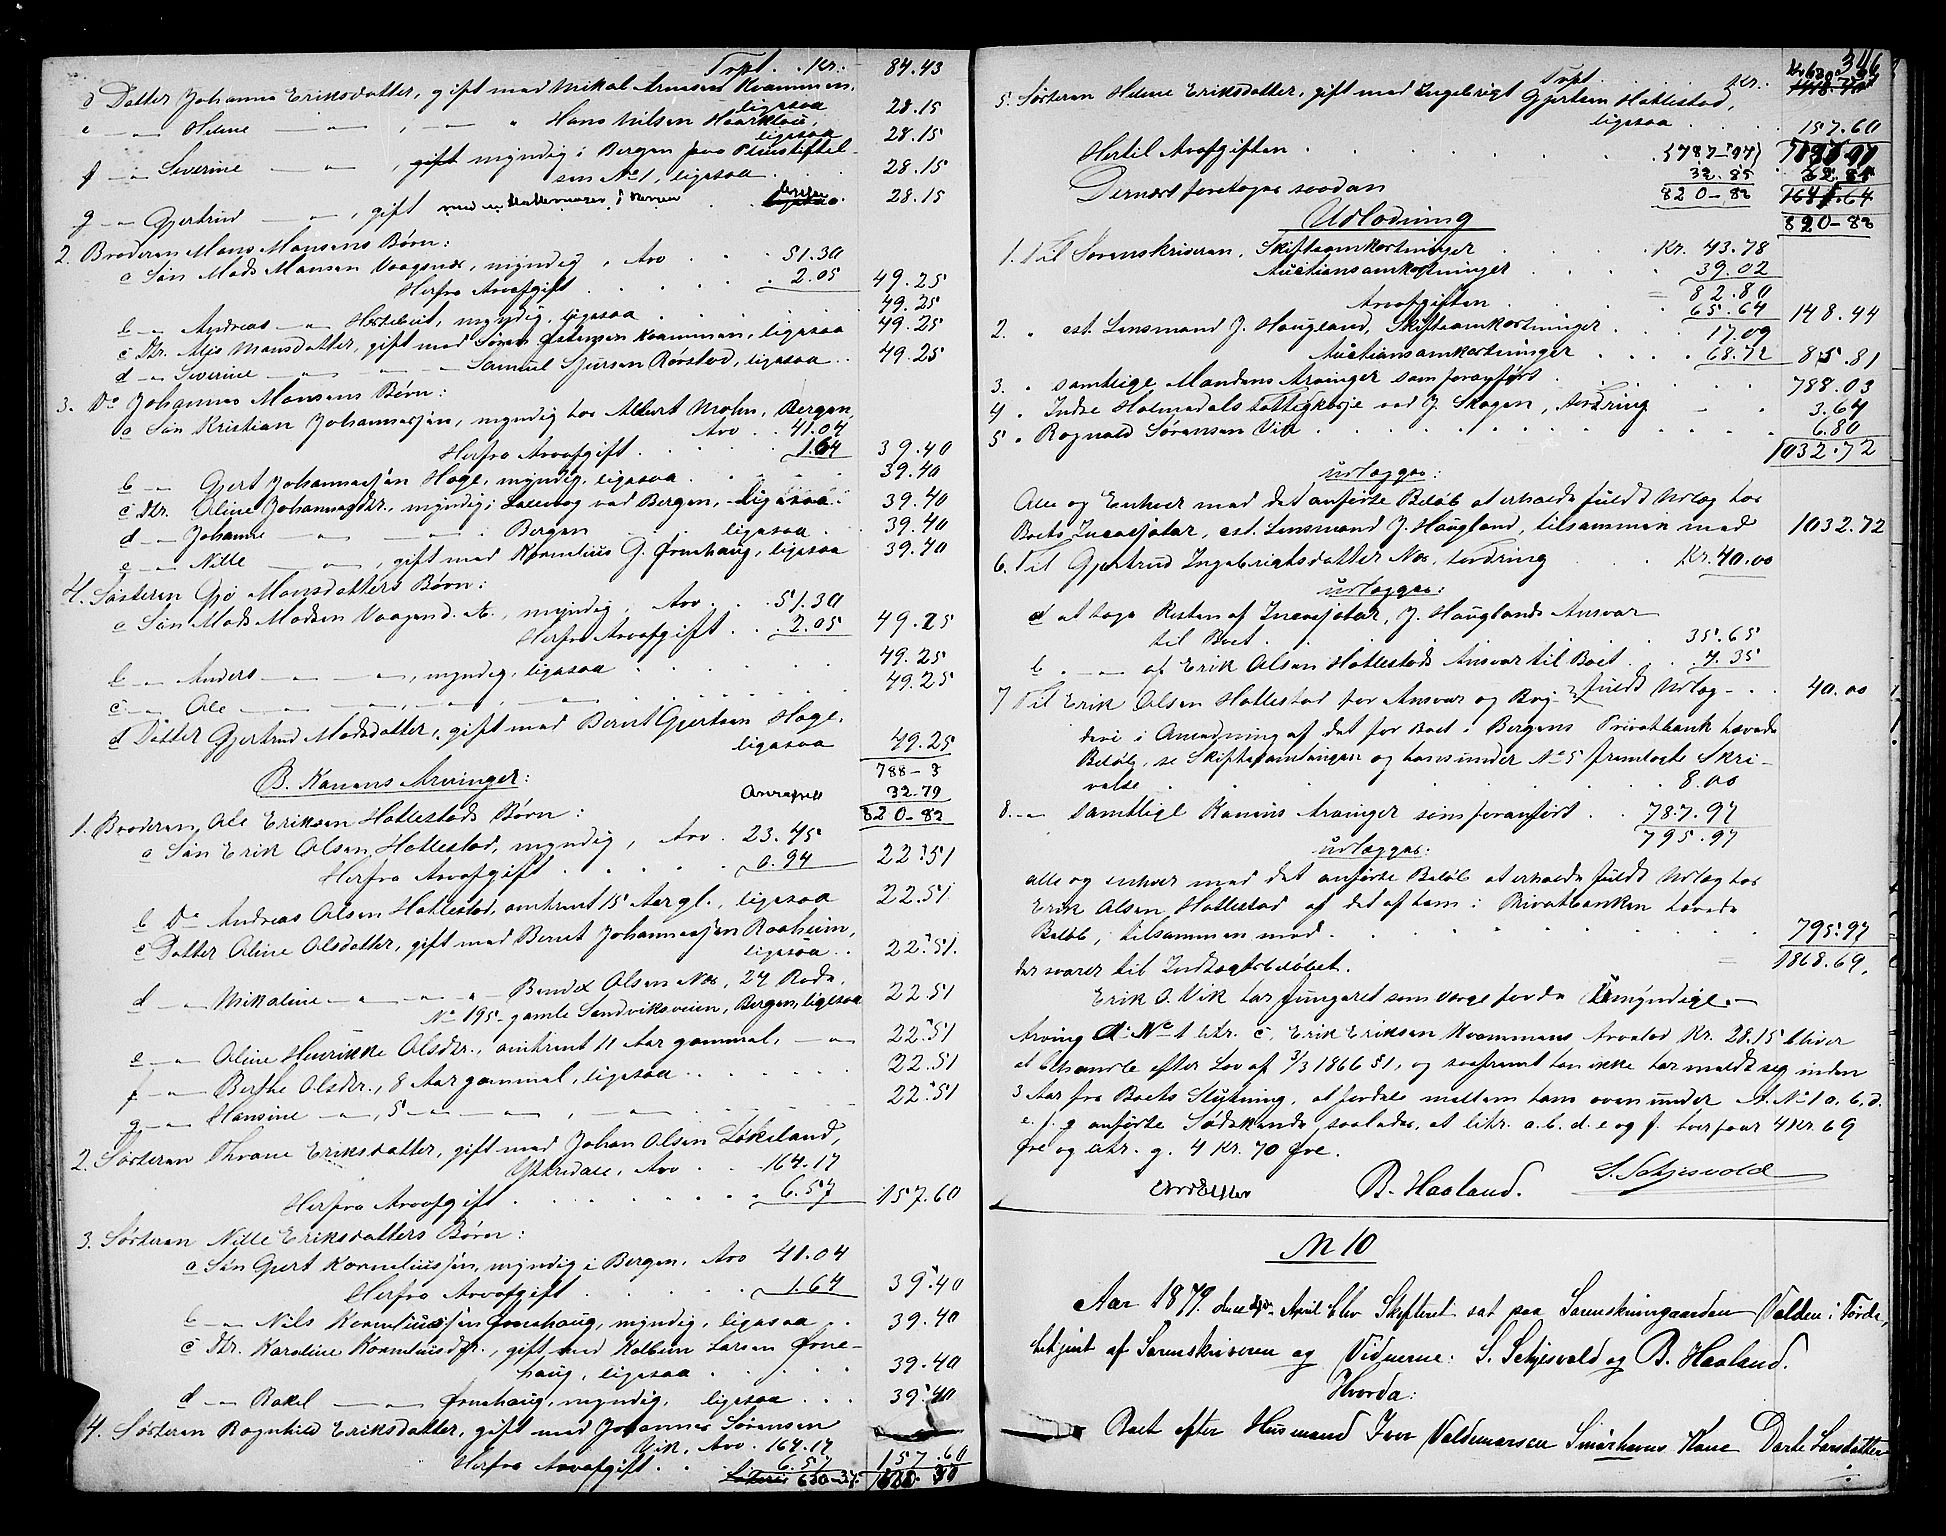 Trpt. . Kr. 84.43
d Datter Johanne Eriksdatter, gift med Mikal Arnesen Kvammen, ligesaa 28.15
e – „ – Helene – „ – , – „ – „ Hans Nilsen Haarklau, ligesaa 28.15
f – „ – Severine – „ – , myndig i Bergen paa Pleiestiftel-
sen No 1, ligesaa . . . 28.15
g – „ – Gjertrud – „ – , gift 28.15
2. Broderen Mons Monsens Børn:
a Søn Mads Monsen Vaagenæs, myndig, Arv . . . 51.30
Herfra Arvafgift . . . . . 2.05 49.25
b – „ – Andreas – „ – Hestebeit, myndig, ligesaa . . . 49.25
c Dtr. Mjis Monsdatter, gift med Søren Østensen Kvammen, ligesaa 49.25
d – „ – Severine – „ – „ – „ – Samuel Sjursen Rørstad, ligesaa . . 49.25
3. Do Johannes Monsens Børn:
a Søn Kristian Johannessøn, myndig hos Albert Mohn, Bergen,
Arv . . 41.04
Herfra Arvafgift . . . . . 1.64 39.40
b – „ – Gjert Johannessøn Hage, myndig, ligesaa . . . 39.40
c Dtr. Oline Johannesdtr., myndig i Laxevaag ved Bergen, ligesaa . 39.40
d – „ – Johanne – „ – „ – Bergen . . ligesaa . 39.40
e – „ – Nille – „ – , gift med Kornelius G. Ørnehaug, ligesaa 39.40
4. Søsteren Gjø Monsdatters Børn:
a Søn Mads Madsen Vaagene, myndig, Arv . . 51.30
Herfra Arvafgift . . 2.05 49.25
b – „ – Anders – „ – „ – , myndig, ligesaa . . . . 49.25
c – „ – Ole – „ – „ – „ – . . . . 49.25
d Datter Gjertrud Madsdatter, gift med Bernt Gjertsen Hage,
ligesaa 49.25
788 – 3
B. Konens Arvinger: Arveafgift 32.79
820 – 82
1. Broderen Ole Eriksen Hatlestads Børn:
a Søn Erik Olsen Hatlestad, myndig, Arv . 23.45
Herfra Arvafgift . . . . 0.94 22.51
b Do Andreas Olsen Hatlestad, omtrent 15 Aar gl., ligesaa 22.51
c Datter Oline Olsdatter, gift med Bernt Johannessøn Raaheim,
ligesaa . . 22.51.
d – „ – Mikaline – „ – „ – „ – Bendix Olsen Næs, 24 Rode,
No 195 gamle Sandviksveien, Bergen, ligesaa 22.51
e – „ – Oline Henrikke Olsdtr., omtrent 11 Aar gammel, – „ – 22.51
f – „ – Berthe Olsdtr., 8 Aar gammel, ligesaa . . . . 22.51
g – „ – Hansine – „ – , 5 – „ – „ – , – „ – . . . 22.51
2. Søsteren Thrane Eriksdatter, gift med Johan Olsen Løkeland,
Yttredale, Arv . . 164.17
Herfra Arvafgift . . . . . . 6.57 157.60
3. Søsteren Nille Eriksdatters Børn:
a Søn Gjert Korneliussøn, myndig i Bergen, Arv 41.04
Herfra Arvafgift . . . . . 1.64 39.40
b – „ – Nils Korneliussøn Ørnehaug, myndig, ligesaa . . 39.40
c Dtr. Karoline Korneliusdtr., gift med Kolbein Larsen Ørne-
haug, ligesaa . . . . 39.40
d – „ – Rakel – „ – Ørnehaug, myndig, ligesaa . . . 39.40
4. Søsteren Ragnhild Eriksdatter, gift med Johannes Sørensen
Vik, Arv . 164.17
Herfra Arvafgift . . . 6.57 157.60
346
Trpt. Kr.
5. Søsteren Helene Eriksdatter, gift med Ingebrigt Gjertsen Hatlestad,
ligesaa . . . . 157.60
Hertil Arvafgiften . . . . . . . . (787 – 97) 787.97
32.85 32.85
Dernæst foretoges saadan 820 – 82
Udlodning 820 – 82
1. Til Sorenskriveren, Skifteomkostninger . . . Kr. 43.78
Auctionsomkostninger . . . . 39.02
= 82.80
Arvafgiften . . . . 65.64 148.44
2. „ cst. Lensmand J. Haugland, Skifteomkostninger . . 17.09
Auctionsomkostninger . . . 68.72 85.81
3. „ samtlige Mandens Arvinger som foranført . . . . . 788.03
4. „ Indre Holmedals Fattigkasse ved J. Skogen, Fordring – – 3.64
5 „ Ragnald Sørensen Vik . . . . . . . . . 6.80
1032.72
udlægges:
Alle og Enhver med det anførte Beløb at erholde fuldt Udlæg hos
Boets Incassator, cst. Lensmand J. Haugland, tilsammen med 1032.72
6. Til Gjertrud Ingebrigtsdatter Næs, Fordring . . . Kr. 40.00
udlægges:
a at tage Resten af Incassator, J. Hauglands Ansvar
til Boet . . . . . . . . 35.65
b . – „ – af Erik Olsen Hatlestads Ansvar til Boet . . 4.35
fuldt Udlæg – . . 40.00
7 Til Erik Olsen Hatlestad for Ansvar og Bry-
deri i Anledning af det for Boet i Bergens Privatbank hævede
Beløb, se Skiftesamlingen og hans under No 5 fremlagte Skri-
velse . . . . . . . . . . 8.00
8. – „ samtlige Konens Arvinger som foranført . . 787.97
795.97
udlægges:
alle og enhver med det anførte Beløb at erholde fuldt Udlæg hos
Erik Olsen Hatlestad af det af ham i Privatbanken hævede
Beløb, tilsammen med . . . . . . . . . 795.97
der svarer til Indtægtsbeløbet. = 1868.69.
Erik O. Vik har fungeret som Værge for de Umyndige. –
Arving A. No 1 litr. c, Erik Eriksen Kvammens Arvelod Kr. 28.15 bliver
at behandle efter Lov af 3/3 1866 § 1, og saafremt han ikke har meldt sig inden
3 Aar fra Boets Slutning, at fordele mellem hans oven under A. No 1 a. b. d.
e. f. g anførte Sødskende saaledes, at litr. a. b. d. e og f. hver faar 4 Kr. 69
Øre og litr. g. 4 Kr. 70 Øre.
B. Haaland. S. Schjesvold
N 10
Aar 1879. den April blev Skifteret sat paa Sorenskrivergaarden Valden i Førde,
betjent af Sorenskriveren og Vidnerne: S. Schjesvold og B. Haaland.
Hvorda:
Boet efter Husmand Iver Valdemarsen Smørhavns Kone Dorte Larsdatter